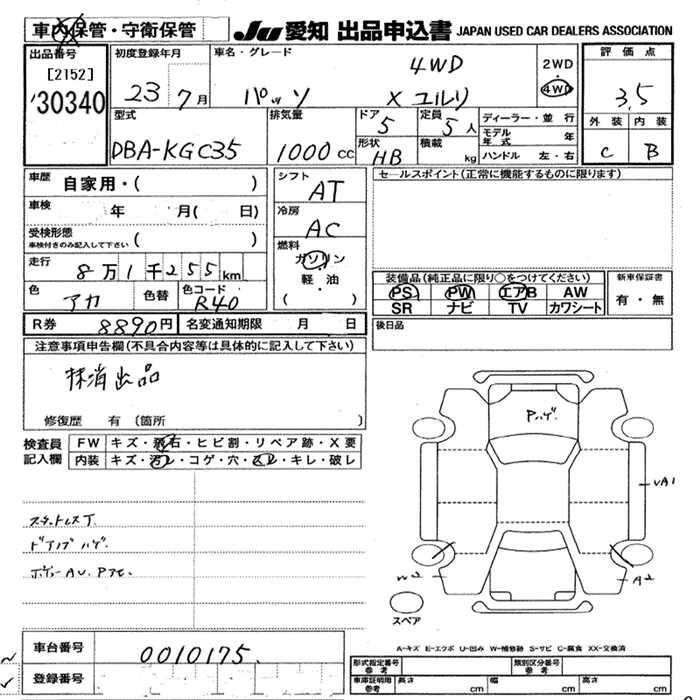 車内保管・守衛保管 Ju 愛知 出品申込書 JAPAN USED CAR DEALERS ASSOCIATION
出品番号 [2152] '30340
初度登録年月 23 7月
車名・グレード パッソ X ユルリ 4WD
2WD・4WD
評価点 3.5
外装 C 内装 B
型式 DBA-KGC35
排気量 1000cc
ドア 5 形状 HB
定員 5人 積載 kg
ディーラー・並行
モデル年式 年
ハンドル 左・右
車歴 自家用・( )
車検 年 月( 日)
受検形態 車検付きのみ記入して下さい ( )
走行 8万1千255km
色 アカ 色替 色コード R40
シフト AT
冷房 AC
燃料 ガソリン・軽油 ( )
セールスポイント(正常に機能するものに限ります)
装備品(純正品に限り○をつけてください)
PS PW エアB AW
SR ナビ TV カワシート
新車保証書 有・無
R券 8890円 名変通知期限 月 日
後日品
注意事項申告欄(不具合内容等は具体的に記入して下さい)
抹消出品
修復歴 有 (箇所 )
検査員記入欄
FW キズ・飛石・ヒビ割・リペア跡・X要
内装 キズ・汚レ・コゲ・穴・スレ・キレ・破レ
スタットレスT
ドアノブハゲ
ボデーAU.
Pハゲ
UA1
W2
A2
スペア
A-キズ E-エクボ U-凹み W-補修跡 S-サビ C-腐食 XX-交換済
車台番号 0010175
登録番号
形式指定番号 参考 類別区分番号 参考
車庫証明用 参考 長さ cm 幅 cm 高さ cm